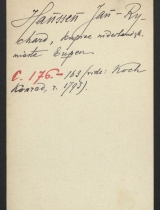 Hanssen Jan-Ry-
chard, kupiec niderlandzk.
miasta Brügen
C. 176. – 163 (vide: Koch
Konrad, r. 1793).